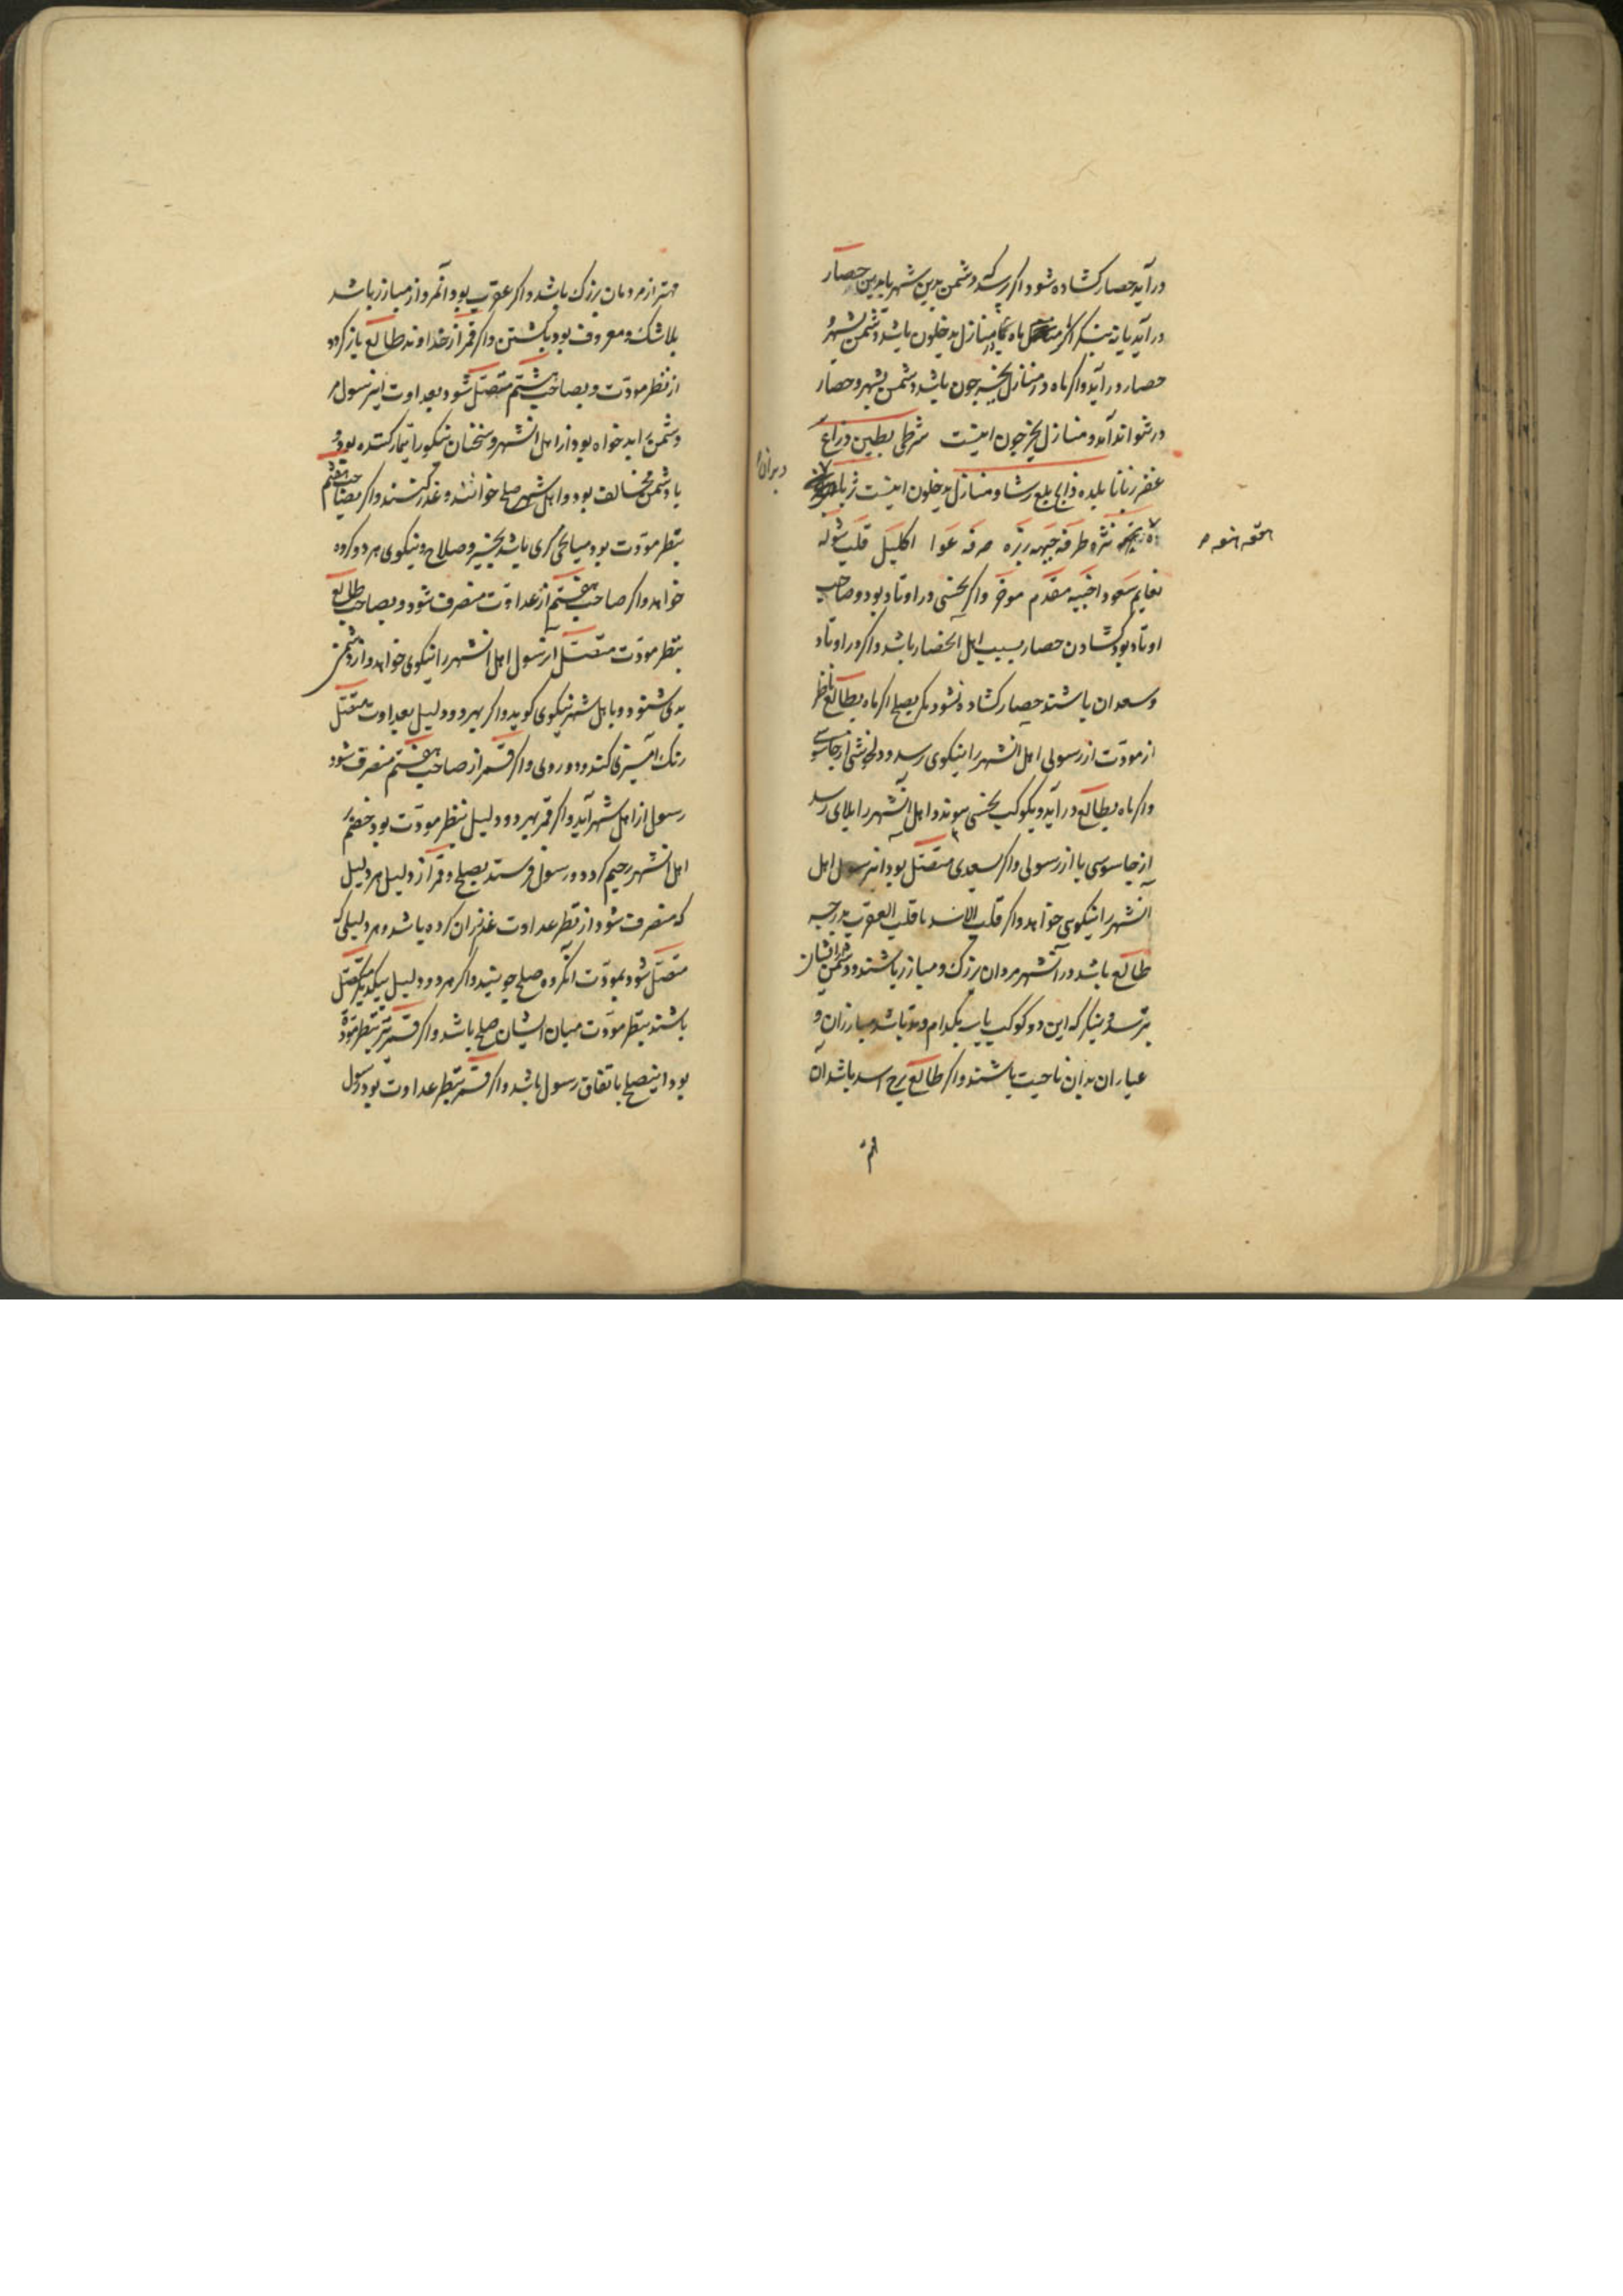 درآید حصار کشاده شود و اگر پرسد که دشمن بدین شهر یا بدین حصار
درآید یا نه بنگر اگر ماه در منازل یدخلون باشد دشمن بشهر و
حصار درآید و اگر ماه در منازل یخرجون باشد دشمن بشهر و حصار
در نتواند آمد و منازل یخرجون اینست شرطی بطین ذراع
غفر زبانا بلده ذابح بلع رشا و منازل یدخلون اینست ثریا
دبران
نثره طرفه جبهه زبره صرفه عوا اکلیل قلب شوله
هقعه هنعه
نعایم سعود اخبیه مقدم موخر و اگر نحسی در اوتاد بود و صاحب
اوتاد بود کشادن حصار بسبب اهل الحصار باشد و اگر در اوتاد
و سعدان باشند حصار کشاده نشود مگر بصلح اگر ماه بطالع ناظر
از مودت از رسولی اهل آنشهر را نیکوی رسد و دلخوشی از جاسوسی
و اگر ماه بطالع درآید و بکوکب نحسی پیوندد اهل آنشهر را بلای رسد
از جاسوسی یا از رسولی و اگر بسعدی متصل بود انرسول اهل
آنشهر را نیکویی خواهد و اگر قلب الاسد یا قلب العقرب بدرجه
طالع باشد در آنشهر مردان بزرک و مبارز باشند و دشمن از ایشان
بترسد و بنگر که این دو کوکب بکدام وتد باشد مبارزان و
عیاران بدان ناحیت باشند و اگر طالع برج اسد باشد آن
مهتر از مردمان بزرک باشد و اگر عقرب بود آنمرد از مبارز باشد
بلاشک و معروف بود بکشتن و اگر قمر از خداوند طالع بازگردد
از نظر مودت و بصاحب هشتم متصل شود بعداوت این رسول مر
دشمن را بدخواه بود از اهل آنشهر و سخنان نیکو را تیمار کننده بود و
با دشمن مخالف بود و اهل شهر صلح خواهند و غدر کنند و اگر بصاحب هفتم
بنظر مودت بود میانجی گری باشد بخیر و صلاح و نیکوی هر دو گروه
خواهد و اگر صاحب هفتم از عداوت منصرف شود و بصاحب طالع
بنظر مودت متصل آنرسول اهل آنشهر را نیکوی خواهد و از دشمن
بدی شنود و با اهل شهر نیکوی کوید و اگر بهر دو دلیل بعداوت متصل
رنک آمیزی کند و دوروی و اگر قمر از صاحب هفتم منصرف شود
رسول از اهل شهر آید و اگر قمر بهر دو دلیل بنظر مودت بود خصم
اهل آنشهر رحیم کردد و رسول فرستد بصلح و قمر از دلیل هر دلیل
که منصرف شود از نظر عداوت عذر آن کرده باشد و هر دلیلی که
متصل شود بمودت انگروه صلح جویند و اگر هر دو دلیل بیکدیگر متصل
باشند بنظر مودت میان ایشان صلح باشد و اگر قمر نیز بنظر مودة
بود اینصلح باتفاق رسول باشد و اگر قمر بنظر عداوت بود رسول